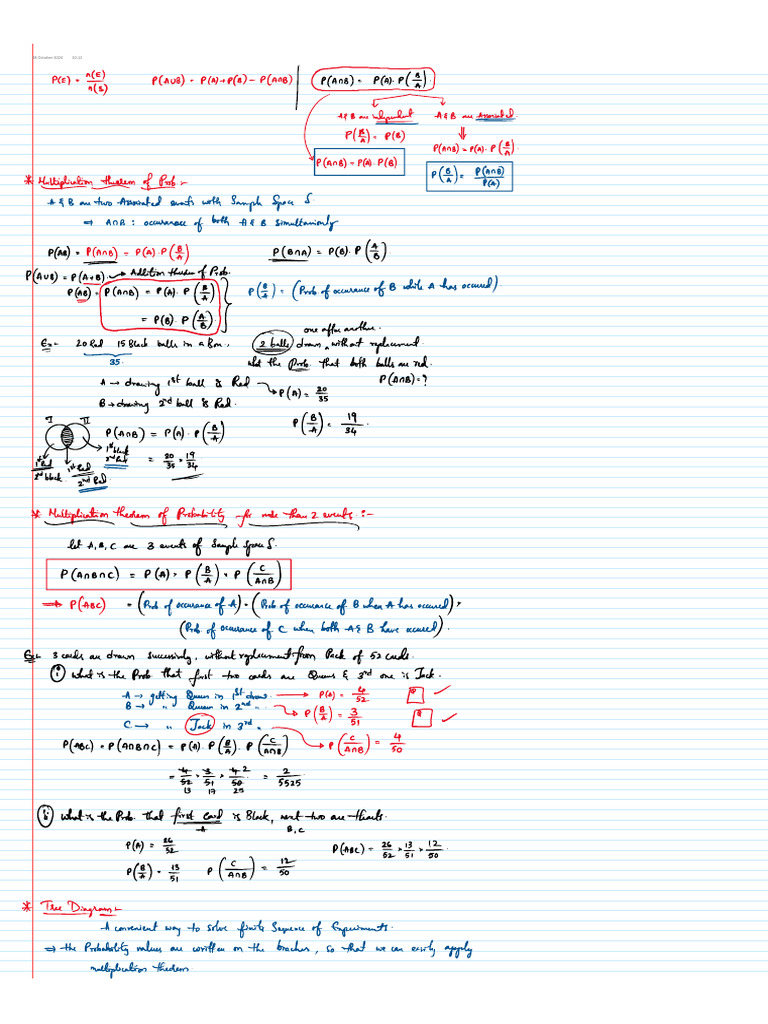 P(E) = n(E)/n(S)    P(A∪B) = P(A)+P(B) − P(A∩B)    P(A∩B) = P(A). P(B/A).
A & B are independent    A & B are Associated.
P(B/A) = P(B)    P(A∩B) = P(A). P(B/A)
P(A∩B) = P(A). P(B)    P(B/A) = P(A∩B)/P(A)
* Multiplication theorem of Prob :-
A & B are two Associated events with Sample Space S.
⇒ A∩B : occurance of both A & B simultaniously
P(AB) = P(A∩B) = P(A). P(B/A)    P(B∩A) = P(B). P(A/B)
P(A∪B) = P(A+B). → Addition theorem of Prob.
P(AB) = P(A∩B) = P(A). P(B/A)    P(B/A) = (Prob. of occurance of B while A has occured)
= P(B). P(A/B).
one after another.
Ex:- 20 Red 15 Black balls in a Box, 2 balls drawn, without replacement.
35.    what the Prob. that both balls are red.
A → drawing 1st ball is Red → P(A) = 20/35    P(A∩B) = ?
B → drawing 2nd ball is Red.    P(B/A) = 19/34.
I    II    P(A∩B) = P(A). P(B/A)
1st black
2nd Red
= 20/35 × 19/34
1st Red    1st Red
2nd black.    2nd Red.
* Multiplication theorem of Probability for more than 2 events :-
let A, B, C are 3 events of Sample Space S.
P(A∩B∩C) = P(A) × P(B/A) × P(C/A∩B)
→ P(ABC) = (Prob of occurance of A) × (Prob of occurance of B when A has occured) ×
(Prob. of occurance of C when both A & B have occured).
Ex:- 3 cards are drawn successively, without replacement from Pack of 52 cards.
i) what is the Prob that first two cards are Queens & 3rd one is Jack.
A → getting Queen in 1st draw. → P(A) = 4/52    Q ✓
B → " Queen in 2nd " → P(B/A) = 3/51    Q ✓
C → " Jack in 3rd " → P(C/A∩B) = 4/50
P(ABC) = P(A∩B∩C) = P(A). P(B/A). P(C/A∩B)
= 4/52 × 3/51 × 4/50 = 2/5525
13    17    25
ii) what is the Prob. that first card is Black, next two are Hearts.
A    B, C
P(A) = 26/52    P(ABC) = 26/52 × 13/51 × 12/50
P(B/A) = 13/51    P(C/A∩B) = 12/50
* Tree Diagram:-
A convenient way to solve finite Sequence of Experiments.
⇒ the Probability values are written on the braches, so that we can easily apply
multiplication theorem.